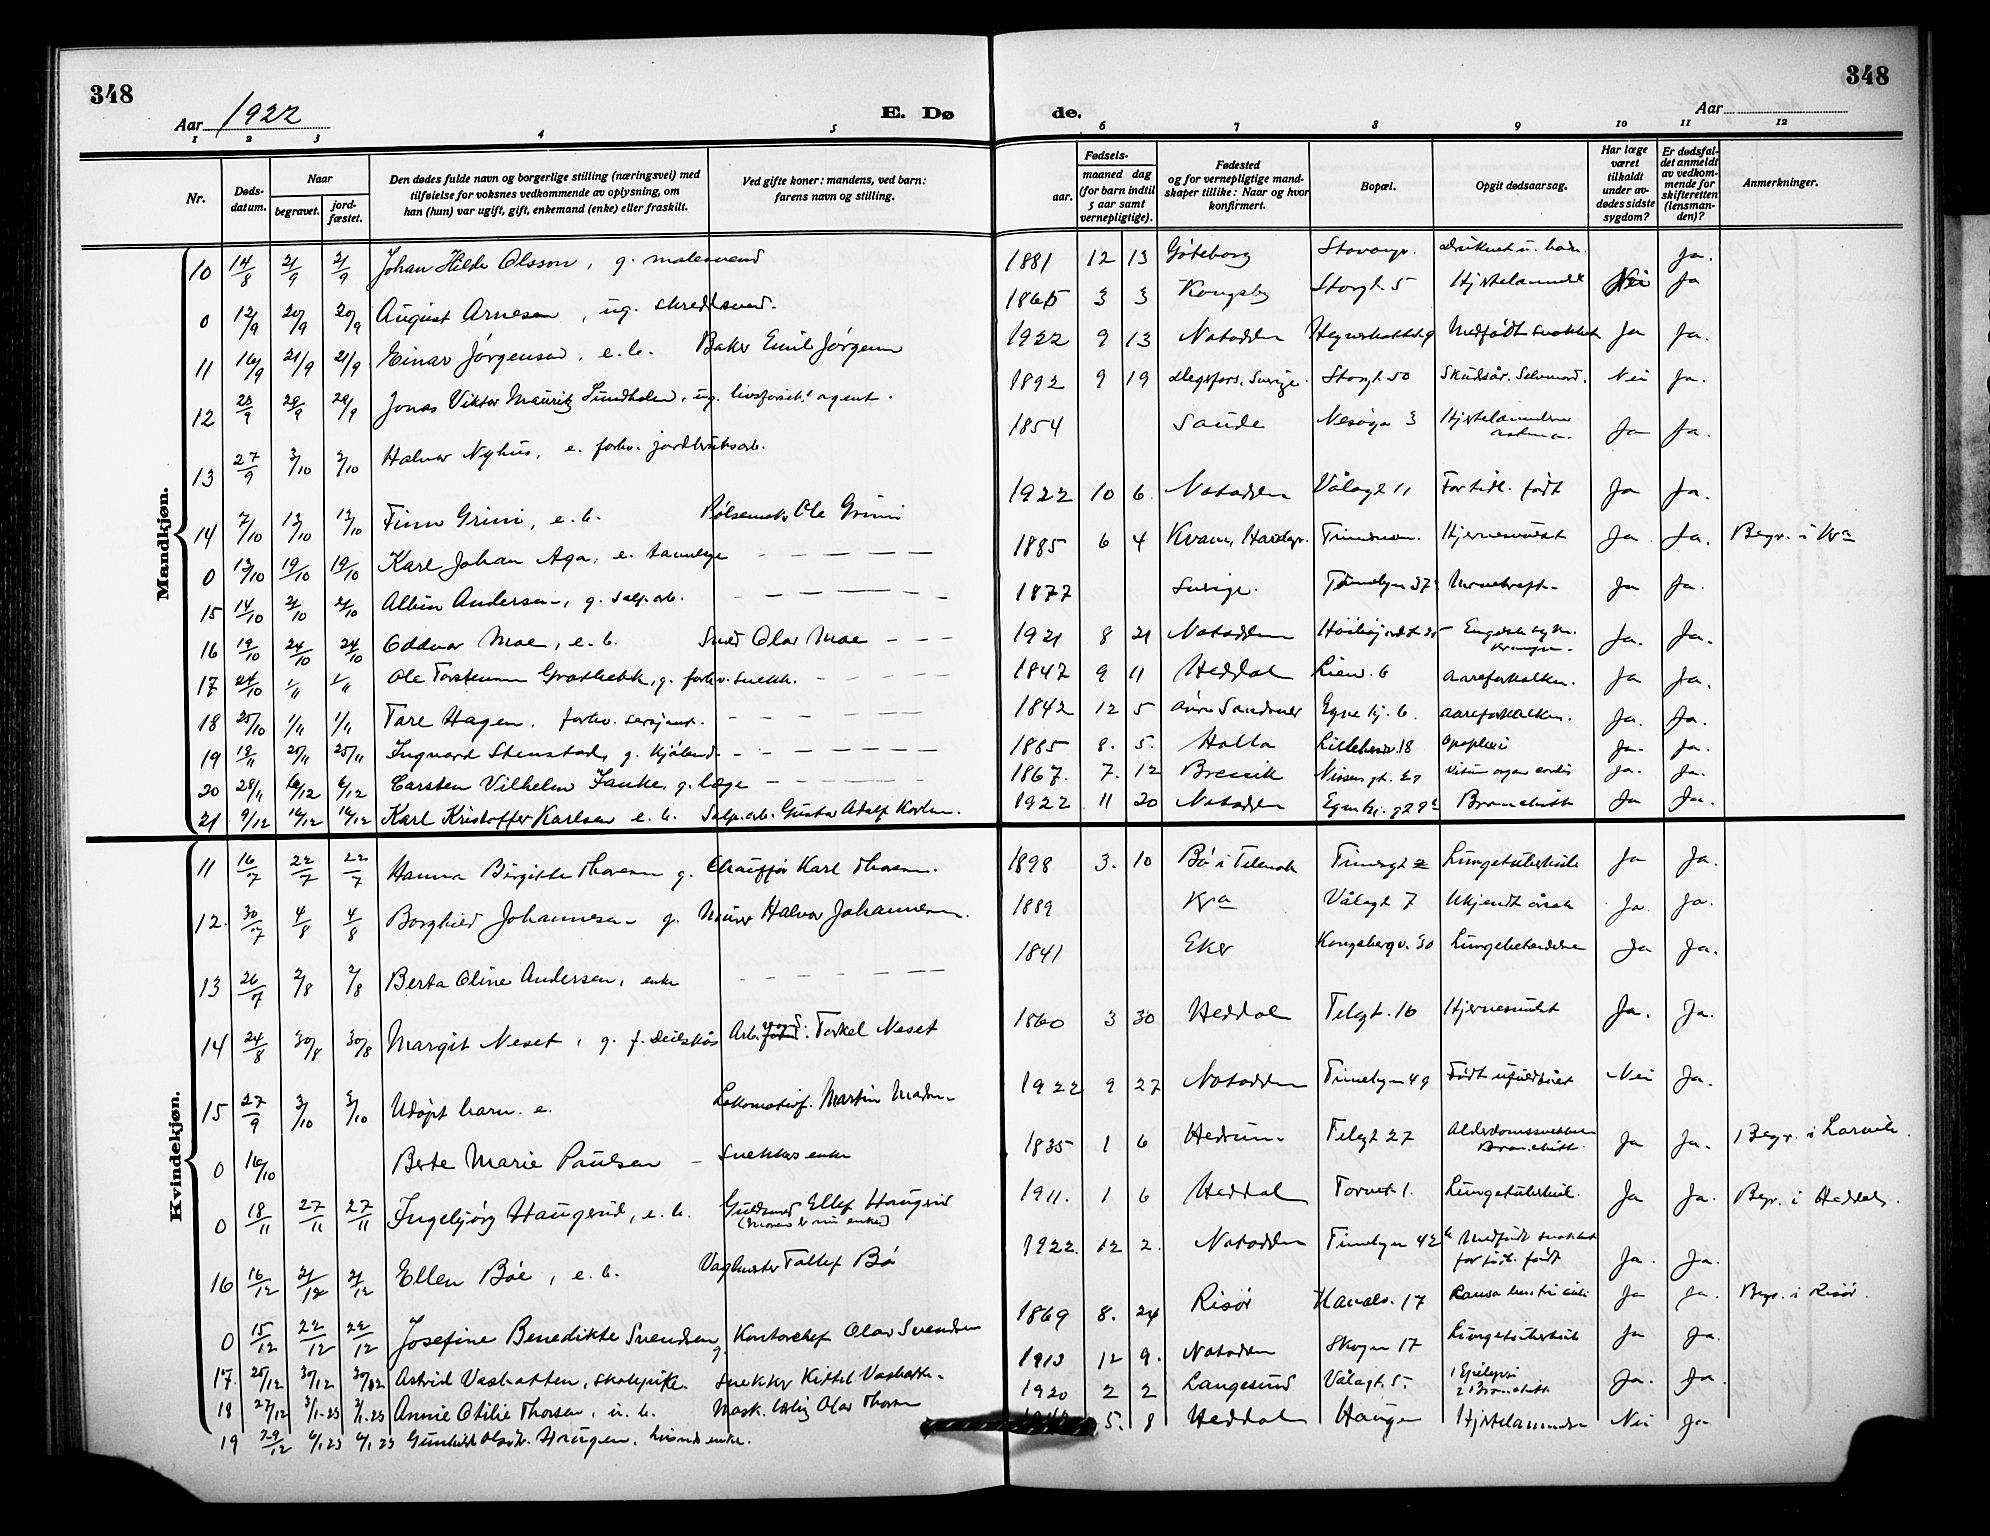 348
348
Aar 1922
E. Døde.
Aar
1 2 3 4 5 6 7 8 9 10 11 12
Nr.
Døds-datum.
Naar
begravet.
jord-fæstet.
Den dødes fulde navn og borgerlige stilling (næringsvei) med
tilføielse for voksnes vedkommende av oplysning, om
han (hun) var ugift, gift, enkemand (enke) eller fraskilt.
Ved gifte koner: mandens, ved barn:
farens navn og stilling.
Fødsels-
aar.
maaned dag
(for barn indtil
5 aar samt
vernepligtige).
Fødested
og for vernepligtige mand-
skaper tillike: Naar og hvor
konfirmert.
Bopæl.
Opgit dødsaarsag.
Har læge
været
tilkaldt
under av-
dødes sidste
sygdom?
Er dødsfal-
det anmeldt
av vedkom-
mende for
skifteretten
(lensman-
den)?
Anmerkninger.
Mandkjøn.
10 14/8 21/9 21/9 Johan Hilde Olsson, g. malersvend 1881 12 13 Göteborg Ja.
0 12/9 20/9 20/9 August Arnesen, ug. 1865 3 3 Kongsbg Storgt. 5 Nei Ja
11 16/9 21/9 21/9 Einar Jørgensen, e.b. Baker Emil Jørgensen 1922 9 13 Notodden Ja Ja.
12 28/9 29/9 Jonas Viktor Mauritz Sundholm, ug. agent. 1892 9 19 Storgt. 50 Skudsår. Selvmord. Nei Ja.
13 27/9 3/10 3/10 Halvor Nyhus, e. forhv. jordbruksarb. 1854 Saude Ja Ja.
14 7/10 13/10 13/10 Finn Grini, e.b. Pølsemaker Ole Grini 1922 10 6 Notodden Vålagt. 11 For tidl. født Ja Ja.
0 13/10 19/10 19/10 Karl Johan Aga, e. tannlege 1885 6 4 Kvam, Hardgr. Ja Ja. Begr. i Kra
15 14/10 21/10 21/10 Albin Andersen, g. salp.arb. 1877 Sverige. Tinnebyen 37 Ja Ja.
16 19/10 24/10 24/10 Oddvar Moe, e.b. Smed Olav Moe 1921 8 21 Notodden Ja. Ja.
17 24/10 1/11 1/11 Ole Torstensen Grotbekk, g. forhv. snekk. 1847 9 11 Heddal Lienv. 6 Aareforkalkn. Ja Ja.
18 25/10 1/11 1/11 Tore Hagen, forhv. sersjant. 1842 12 5 Øvre Sandsver Egne hj. 6. Aareforkalkn. Ja. Ja.
19 19/11 25/11 25/11 Ingvard Stenstad, g. 1885 8. 5. Holla Apoplexi Ja. Ja.
20 28/11 6/12 6/12 Carsten Vilhelm Janke, g. læge 1867. 7. 12 Brevik Vitium organ. cordis Ja. Ja.
21 9/12 16/12 16/12 Karl Kristoffer Karlsen e.b. Salp.arb. Gustav Adolf Karlsen. 1922 11 20 Notodden Bronchitt Ja Ja.
Kvindekjøn.
11 16/7 22/7 22/7 Hanna Birgitte Thorsen g. Chauffør Karl Thorsen. 1898 3. 10 Bø i Telemark Lungetuberkul. Ja Ja.
12. 30/7 4/8 4/8 Borghild Johannesen g. Murer Halvor Johannesen. 1889 Kra Vålagt 7 Ukjendt årsak Ja. Ja.
13 26/7 2/8 2/8 Berta Oline Andersen, enke 1841 Eker Kongsbergv. 30 Lungebetændelse Ja Ja.
14 24/8 30/8 30/8 Margit Neset, g. Torkel Neset 1860 3 30 Heddal Telegt. 16 Ja. Ja.
15 27/9 3/10 3/10 Udøpt barn. e. Lokomotivf. Martin Madsen 1922 9 27 Notodden Tinnebyen 49 Født ufuldbåret Nei Ja.
0 16/10 Berte Marie Paulsen Snekkers enke 1835 1 6 Hedrum Telegt 27 Alderdomssvakhet Bronchitt Ja Ja. Begr. i Larvik.
0 18/11 27/11 27/11 Ingebjørg Haugerud, e.b. Guldsmed Ellef Haugrud (Moren er nu enke) 1911. 1 6 Heddal Torvet 1. Lungetuberkul. Ja Ja. Begr. i Heddal.
16 16/12 21/12 21/12 Ellen Bøe, e.b. Tollef Bø 1922. 12 2. Notodden Tinnebyen 42 Medfødt svakhet for tidl. født Ja. Ja.
0 15/12 22/12 22/12 Josefine Benedikte Svendsen g. Kontorchef Olav Svendsen 1869 8. 24 Risør 17 Ja Ja. Begr. i Risør.
17. 25/12 30/12 30/12 Astrid Vashotten, skolepike. Snekker Kittel Vashotten 1913 12 9. Notodden Skogen 17 Lungetuberkul. Ja Ja.
18 27/12 3/1.23 3/1.23 Annie Otilie Thorsen, u.b. Olav Thorsen 1920 2 2 Langesund Vålagt. 5. 1 Epilepsi 2 Bronchitt Ja. Ja.
19 29/12 6/1 23 6/1 23 Gunhild Olsdtr. Haugen, enke. 5. 8 Heddal Haugen Hjertelammelse Nei Ja